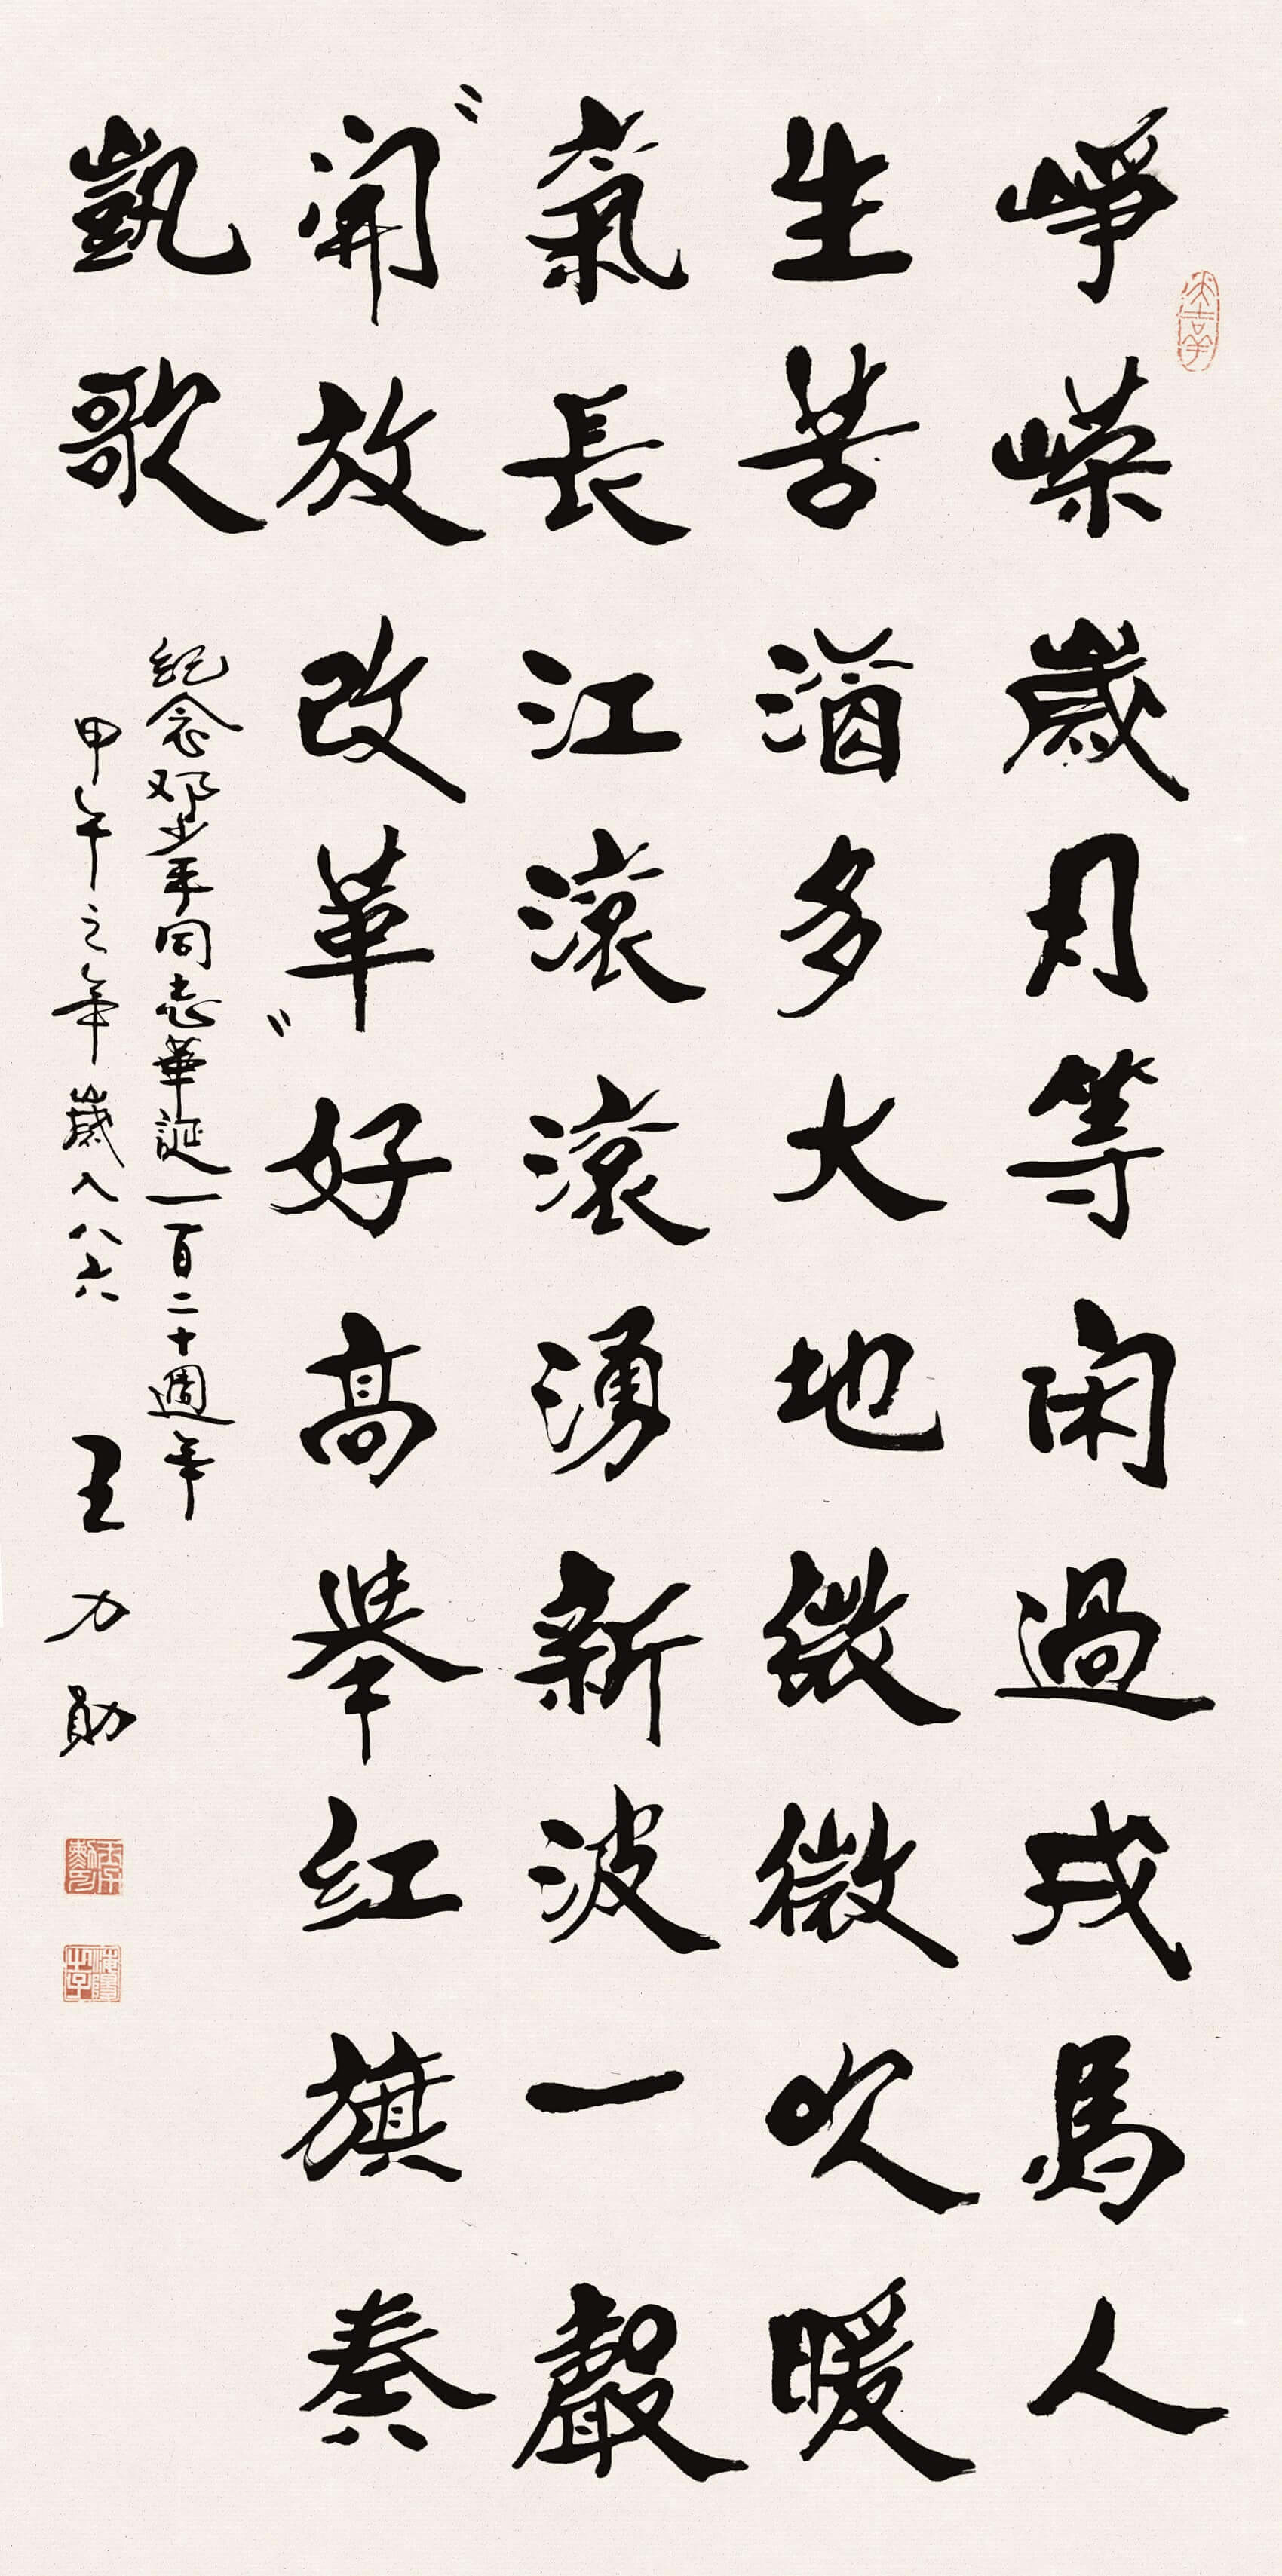 崢嶸歲月等闲過戎馬人
生苦多大地微微吹暖
氣長江滾滾湧新波一聲
"開放改革"好高舉红旗奏
凱歌
紀念邓小平同志華誕一百二十週年
甲午之年歲入八六 王力勛